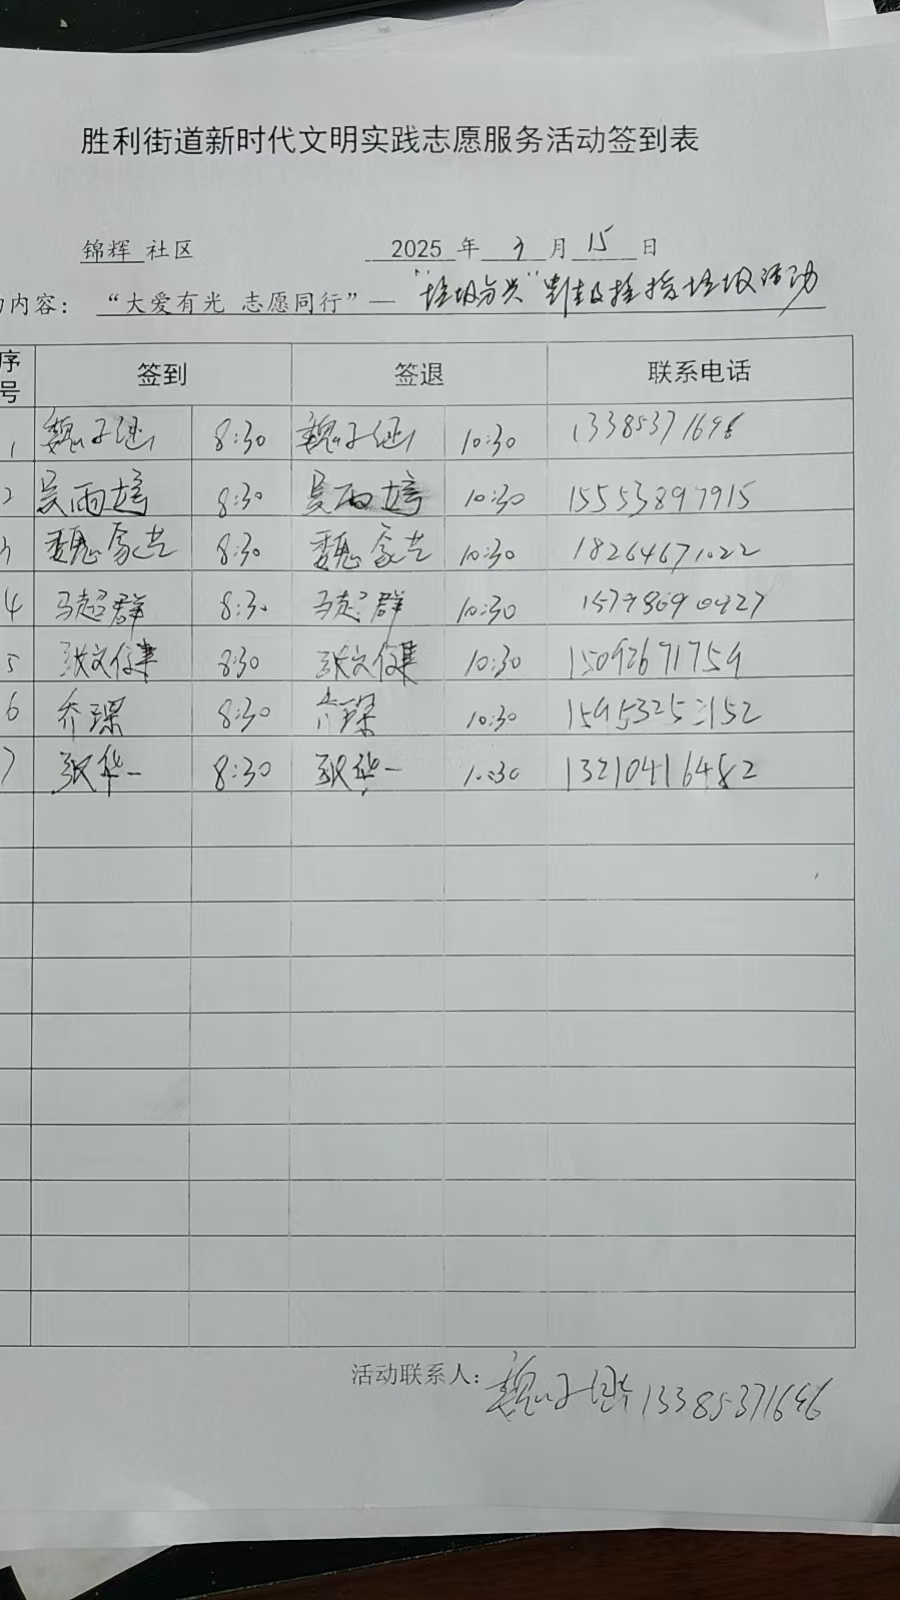 胜利街道新时代文明实践志愿服务活动签到表
锦辉 社区 2025 年 3 月 15 日
内容： “大爱有光 志愿同行”— 垃圾 捡拾垃圾活动
序号 签到 签退 联系电话
1 魏 8:30 魏 10:30 1338537169
2 吴雨婷 8:30 吴雨婷 10:30 15553897915
3 魏家兰 8:30 魏家兰 10:30 18264671022
4 马超群 8:30 马超群 10:30
5 张文倩 8:30 张文倩 10:30 15092671759
6 乔琛 8:30 乔琛 10:30
7 张华一 8:30 张华一 10:30 13210416482
活动联系人： 魏